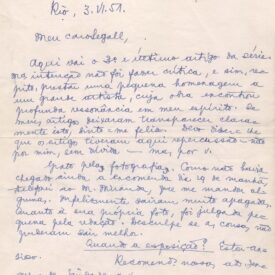 Rio, 3.VI.51.
Meu caro Segall,
Aqui vai o 3º e último artigo da série.
Minha intenção não foi fazer crítica, e sim, re-
pito, prestar uma pequena homenagem a
um grande artista, cuja obra encontrou
profunda ressonância em meu espírito. Se
meus artigos deixaram transparecer clara-
mente isto, sinto-me feliz. Devo dizer-lhe
que os artigos tiveram aqui repercussão — não
por mim, sem dúvida — mas por v.
Grato pelas fotografias. Como não havia
chegado ainda a encomenda de 19 de março
telefonei ao M. Miranda, que me mandou al-
gumas. Infelizmente saíram muito apagadas.
Quanto à sua própria foto, foi julgada pe-
quena pela redação. Desculpe se a cousa não
puderam sair melhor.
Quando a exposição? Estou ansioso